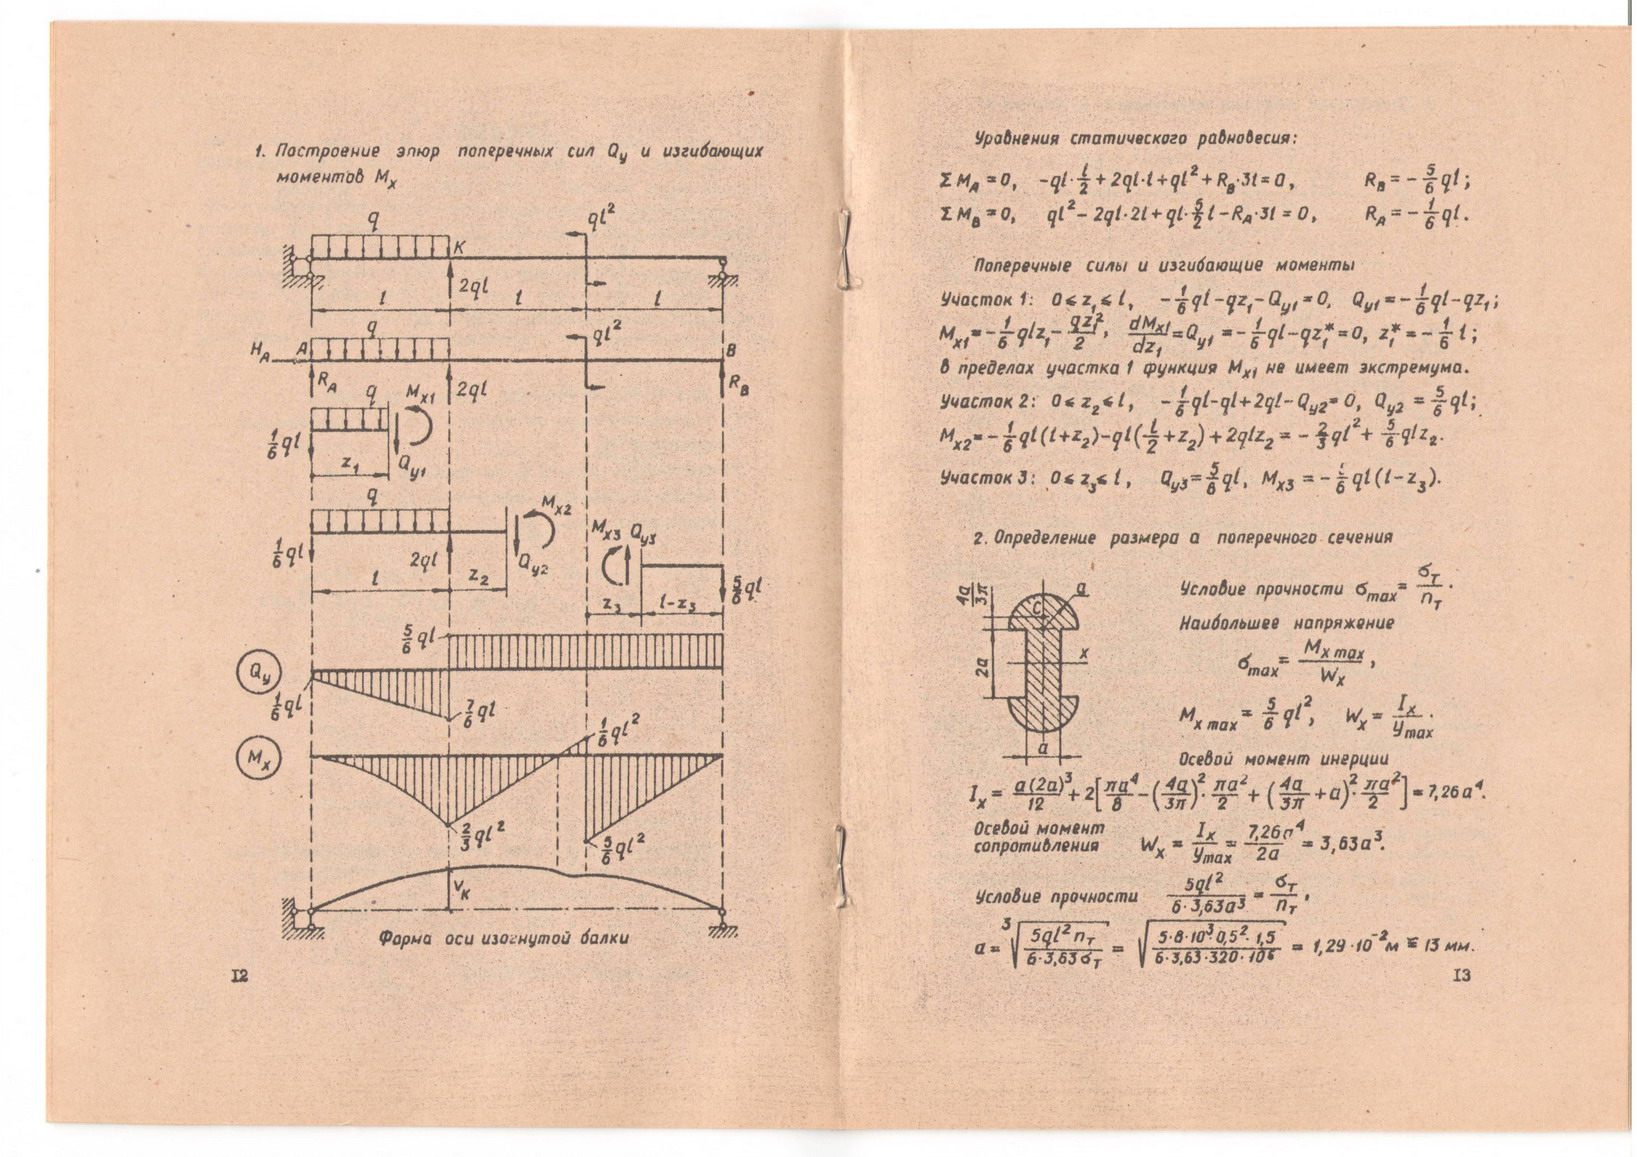 1. Построение эпюр поперечных сил Qy и изгибающих
моментов Mx
q
ql²
K
2ql
l
l
l
q
ql²
HA
A
B
RA
2ql
RB
q
Mx1
1/6 ql
z1
Qy1
q
Mx2
1/6 ql
2ql
Qy2
l
z2
Mx3
Qy3
5/6 ql
z3
l-z3
5/6 ql
Qy
1/6 ql
7/6 ql
1/6 ql²
Mx
2/3 ql²
5/6 ql²
VK
Форма оси изогнутой балки
12
Уравнения статического равновесия:
ΣMA=0, -ql·l/2+2ql·l+ql²+RB·3l=0, RB=-5/6 ql;
ΣMB=0, ql²-2ql·2l+ql·5/2 l-RA·3l=0, RA=-1/6 ql.
Поперечные силы и изгибающие моменты
Участок 1: 0≤z1≤l, -1/6 ql-qz1-Qy1=0, Qy1=-1/6 ql-qz1;
Mx1=-1/6 qlz1-qz1²/2, dMx1/dz1=Qy1=-1/6 ql-qz1*=0, z1*=-1/6 l;
в пределах участка 1 функция Mx1 не имеет экстремума.
Участок 2: 0≤z2≤l, -1/6 ql-ql+2ql-Qy2=0, Qy2=5/6 ql;
Mx2=-1/6 ql(l+z2)-ql(l/2+z2)+2qlz2=-2/3 ql²+5/6 qlz2.
Участок 3: 0≤z3≤l, Qy3=5/6 ql, Mx3=- /6 ql(l-z3).
2. Определение размера a поперечного сечения
4a/3π
C
a
2a
x
a
Условие прочности σmax=σT/nT.
Наибольшее напряжение
σmax=Mx max/Wx,
Mx max=5/6 ql², Wx=Ix/ymax.
Осевой момент инерции
Ix=a(2a)³/12+2[πa⁴/8-(4a/3π)²·πa²/2+(4a/3π+a)²·πa²/2]=7,26a⁴.
Осевой момент
сопротивления Wx=Ix/ymax=7,26a⁴/2a=3,63a³.
Условие прочности 5ql²/6·3,63a³=σT/nT,
a=³√(5ql²nT/6·3,63σT)=√(5·8·10³·0,5²·1,5/6·3,63·320·10⁶)=1,29·10⁻²м≅13 мм.
13